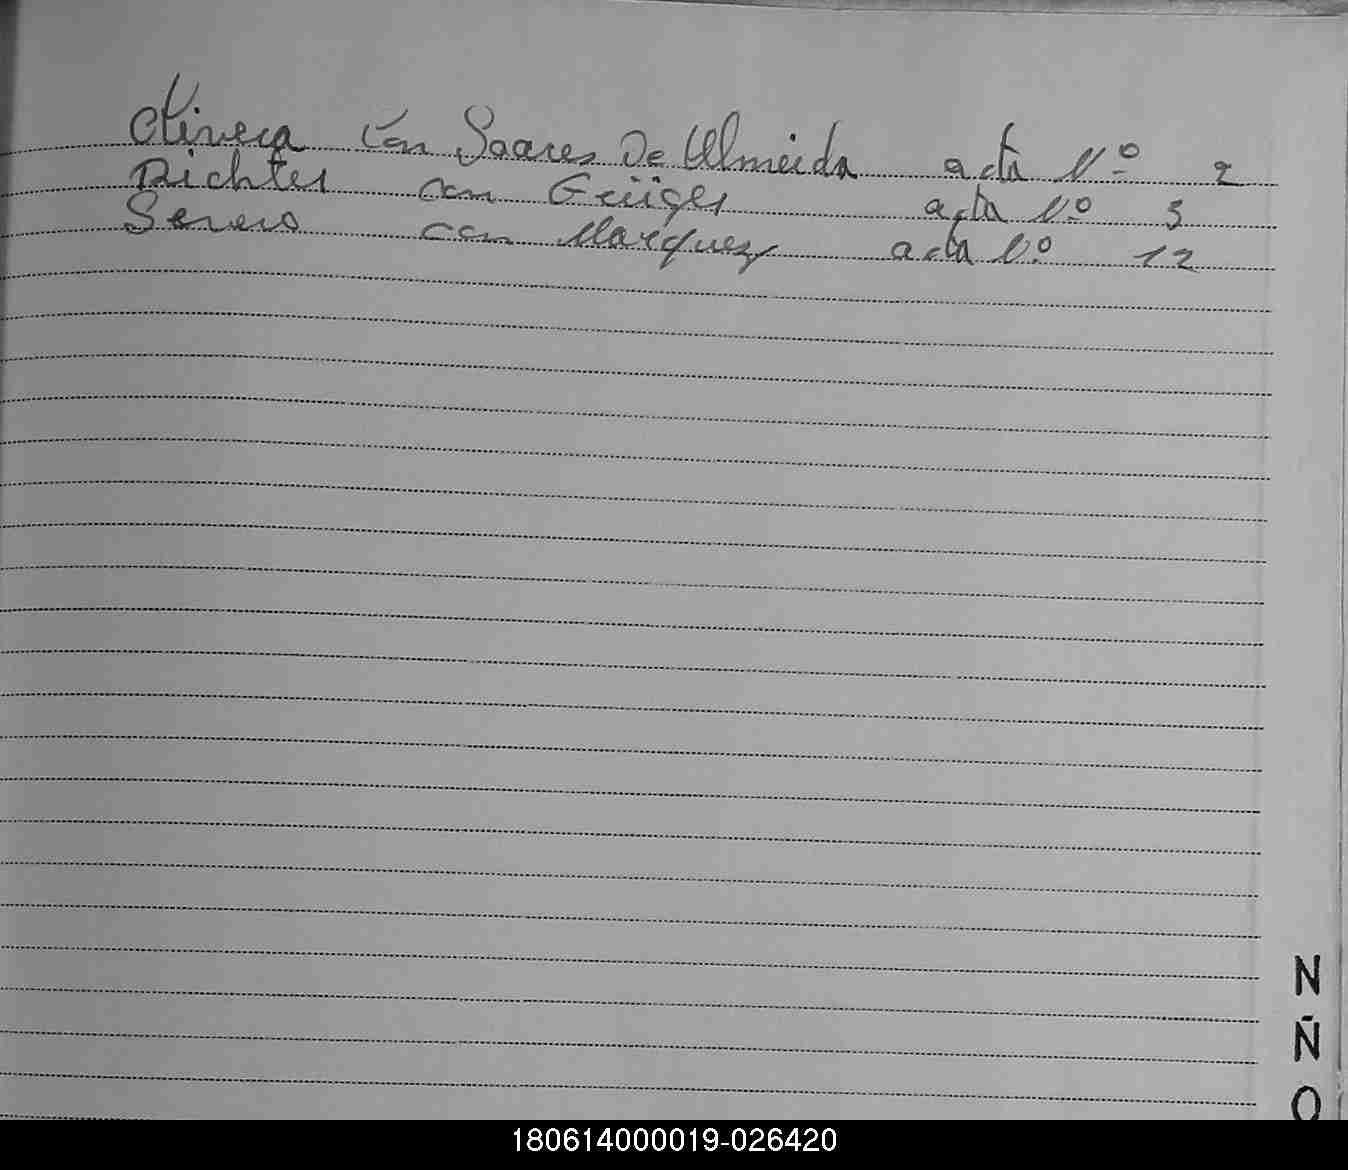 Olivera con Soares De Almeida acta Nº 2
Richter con Geiiger acta Nº 3
Severo con Marquez acta Nº 12
N
Ñ
O
180614000019-026420